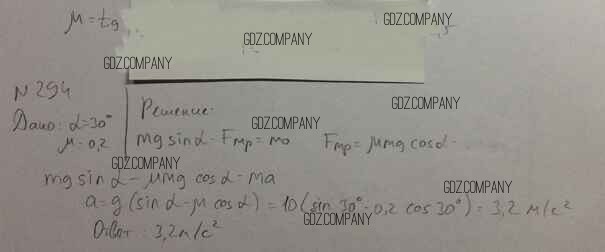 μ = tg
GDZ.COMPANY
GDZ.COMPANY
GDZ.COMPANY
N 294
Дано: α=30°
μ=0,2
Решение:
GDZ.COMPANY
GDZ.COMPANY
mg sinα - Fтр = ma Fтр = μmg cosα
GDZ.COMPANY
mg sin α - μmg cos α = ma
GDZ.COMPANY
a = g (sin α - μ cos α) = 10 (sin 30° - 0,2 cos 30°) = 3,2 м/с²
GDZ.COMPANY
Ответ: 3,2 м/с²